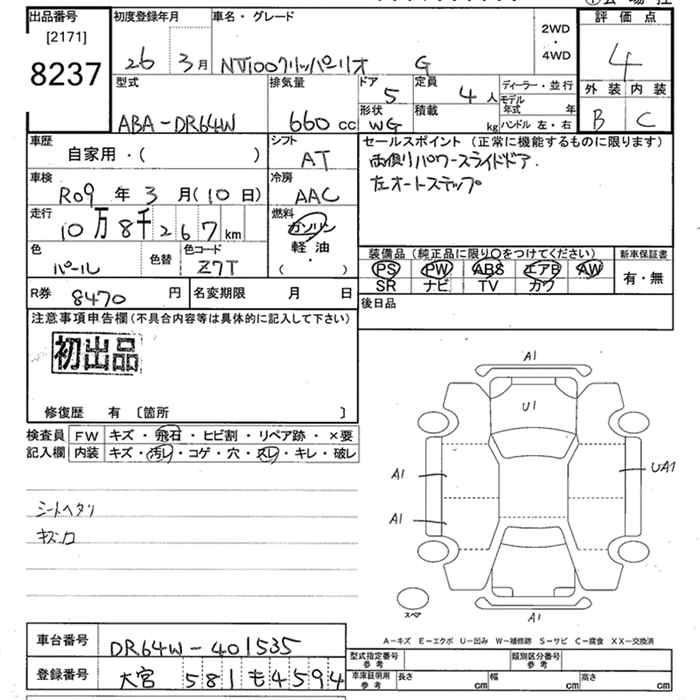 出品番号 初度登録年月 車名・グレード 2WD・4WD 評価点
[2171]
8237 26 3月 NT100クリッパーリオ G 4
型式 排気量 ドア 5 定員 4人 ディーラー・並行 外装 内装
ABA-DR64W 660cc 形状 WG 積載 kg モデル年式 年 ハンドル 左・右 B C
車歴 自家用・( ) シフト AT セールスポイント (正常に機能するものに限ります)
両側パワースライドドア.
左オートステップ
車検 R09年3月(10日) 冷房 AAC
走行 10万8千267km 燃料 ガソリン 軽油 ・ ( )
色 パール 色替 色コード Z7T
装備品 (純品に限り○をつけてください) 新車保証書
PS PW ABS エアB AW 有・無
SR ナビ TV カワ
R券 8470円 名変期限 月 日 後日品
注意事項申告欄(不具合内容等は具体的に記入して下さい)
初出品
修復歴 有 〔箇所 〕
検査員 FW キズ・飛石・ヒビ割・リペア跡・×要
記入欄 内装 キズ・汚レ・コゲ・穴・スレ・キレ・破レ
シートヘタリ
A1
U1
A1
UA1
A1
A1
スペア
A-キズ E-エクボ U-凹み W-補修跡 S-サビ C-腐食 XX-交換済
車台番号 DR64W-401535
型式指定番号 参考 類別区分番号 参考
登録番号 大宮 581 も 4594
車庫証明用 参考 長さ cm 幅 cm 高さ cm